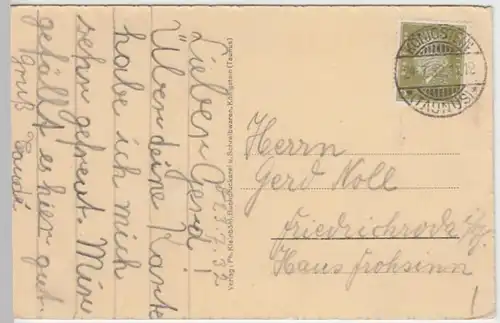 Lieber Gerd!
23.7.32
Über deine Karte
habe ich mich
sehr gefreut. Mir
gefällt es hier gut.
Gruß
Verlag: Ph. Kleinböhl, Buchdruckerei u. Schreibwaren, Königstein (Taunus)
KÖNIGSTEIN
(TAUNUS)
Herrn
Gerd Noll
Friedrichroda Thg.
Haus Frohsinn